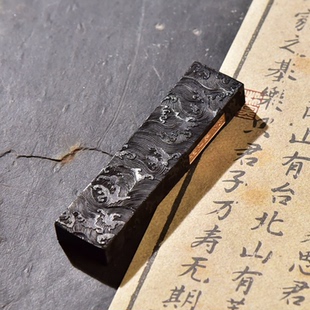 思君
山有台北山有
家之基樂君子万寿无期